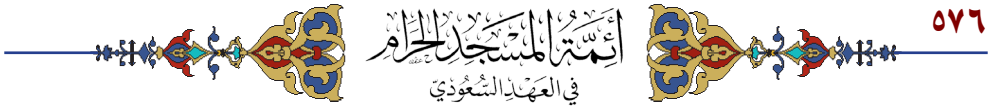 ٥٧٦
أَئِمَّةُ المَسْجِدِ الحَرَامِ
في العَهْدِ السُّعُودِيّ